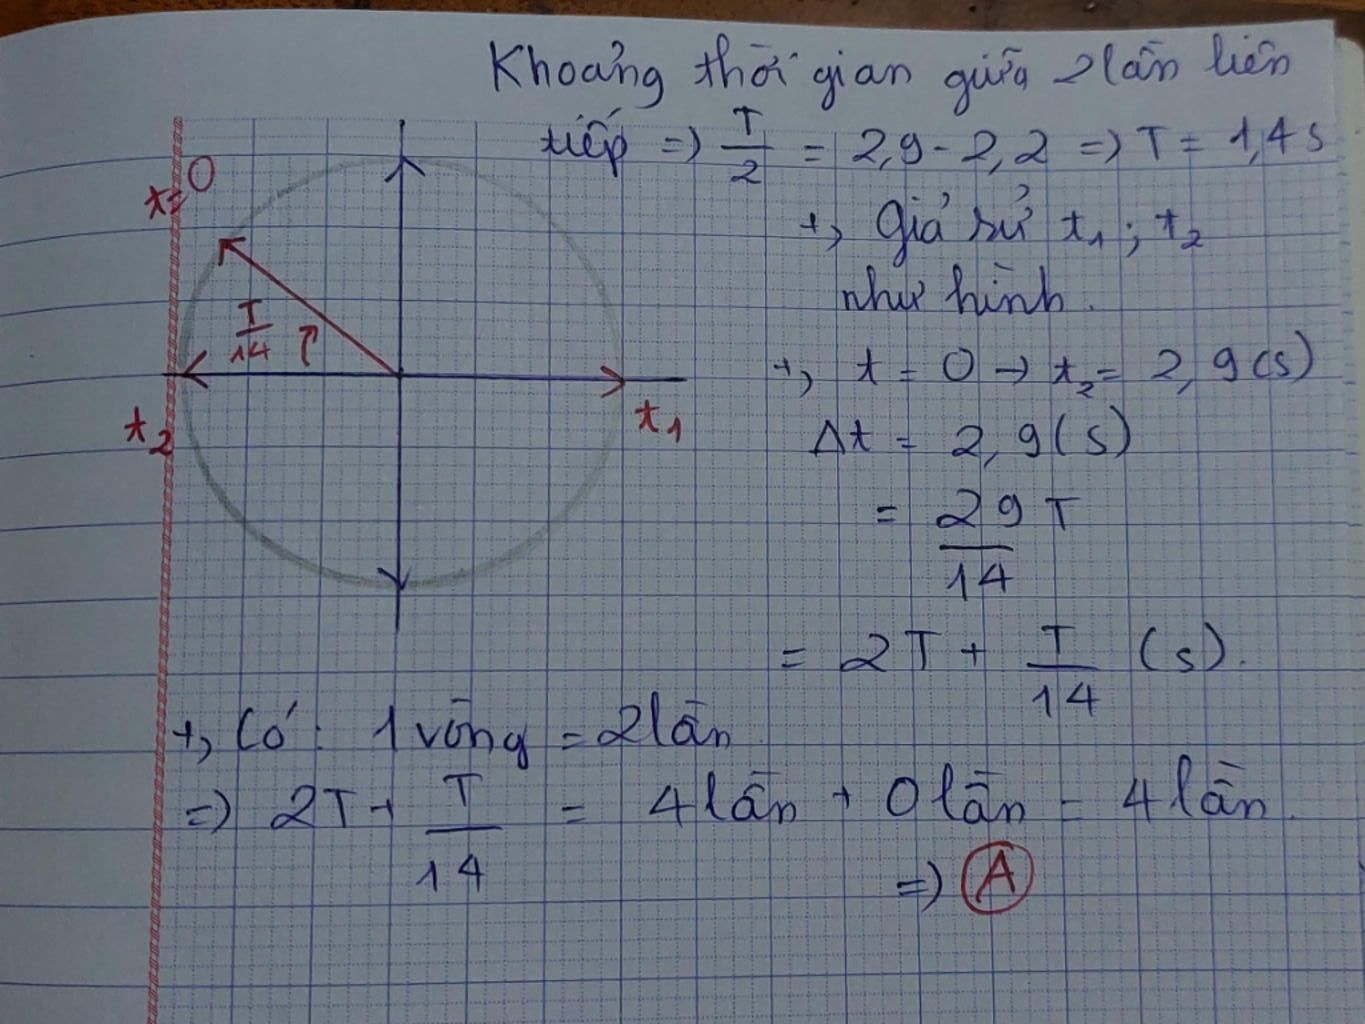 Khoảng thời gian giữa 2 lần liên
tiếp => T/2 = 2,9 - 2,2 => T = 1,4 s
t=0
+, Giả sử t₁ ; t₂
như hình.
T/14
+, t = 0 → t₂ = 2,9 (s)
t₂
t₁
Δt = 2,9 (s)
= 29/14 T
= 2T + T/14 (s).
+, Có : 1 vòng = 2 lần
=> 2T + T/14 = 4 lần + 0 lần = 4 lần.
=> A